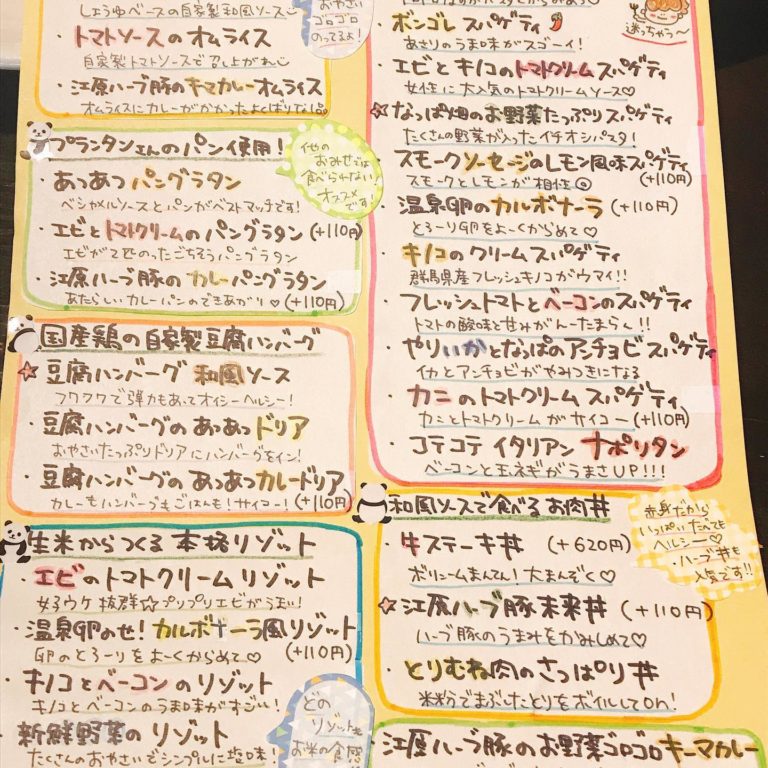 しょうゆベースの自家製和風ソース
・トマトソースのオムライス
自家製トマトソースで召し上がれ
・江原ハーブ豚のキマカレーオムライス
オムライスにカレーがかかったよくばりな1品
おやさい
ゴロゴロ
のってるよ!
プランタンさんのパン使用!
他の
おみせでは
食べられない
オススメ
です!
・あつあつパングラタン
ベシャメルソースとパンがベストマッチです!
・エビとトマトクリームのパングラタン(+110円)
エビが7匹のったごちそうパングラタン
・江原ハーブ豚のカレーパングラタン
あたらしいカレーパンのできあがり♡(+110円)
国産鶏の自家製豆腐ハンバーグ
☆豆腐ハンバーグ 和風ソース
フワフワで弾力もあってオイシーヘルシー!
・豆腐ハンバーグのあつあつドリア
おやさいたっぷりドリアにハンバーグをイン!
・豆腐ハンバーグのあつあつカレードリア
カレーもハンバーグもごはんも!サイコー!(+110円)
生米からつくる本格リゾット
・エビのトマトクリームリゾット
女子ウケ抜群☆プリプリエビがうまい!
・温泉卵のせ!カルボナーラ風リゾット
卵のとろーりをよーくからめて♡(+110円)
・キノコとベーコンのリゾット
キノコとベーコンのうま味がすごい!
・新鮮野菜のリゾット
たくさんのおやさいでシンプルに塩味!
どの
リゾットも
お米の食感
迷っちゃう〜
・ボンゴレスパゲティ
あさりのうま味がスゴーイ!
・エビとキノコのトマトクリームスパゲティ
女性に大人気のトマトクリームソース♡
☆なっぱ畑のお野菜たっぷりスパゲティ
たくさんの野菜が入ったイチオシパスタ!
・スモークソーセージのレモン風味スパゲティ
スモークとレモンが相性◎(+110円)
・温泉卵のカルボナーラ(+110円)
とろーり卵をよーくからめて♡
・キノコのクリームスパゲティ
群馬県産フレッシュキノコがウマイ!!
・フレッシュトマトとベーコンのスパゲティ
トマトの酸味と甘みがんーたまらん!!
・やりいかとなっぱのアンチョビスパゲティ
イカとアンチョビがやみつきになる
・カニのトマトクリームスパゲティ
カニとトマトクリームがサイコー(+110円)
・コテコテイタリアンナポリタン
ベーコンと玉ネギがうまさUP!!!
和風ソースで食べるお肉丼
赤身だから
いっぱいたべても
ヘルシー♡
・ハーブ丼も
人気です!!
・牛ステーキ丼(+620円)
ボリュームまんてん!大まんぞく♡
☆江原ハーブ豚未来丼(+110円)
ハーブ豚のうまみをかみしめて♡
・とりむね肉のさっぱり丼
米粉でまぶしたとりをボイルしてOn!
・江原ハーブ豚のお野菜ゴロゴロキーマカレー